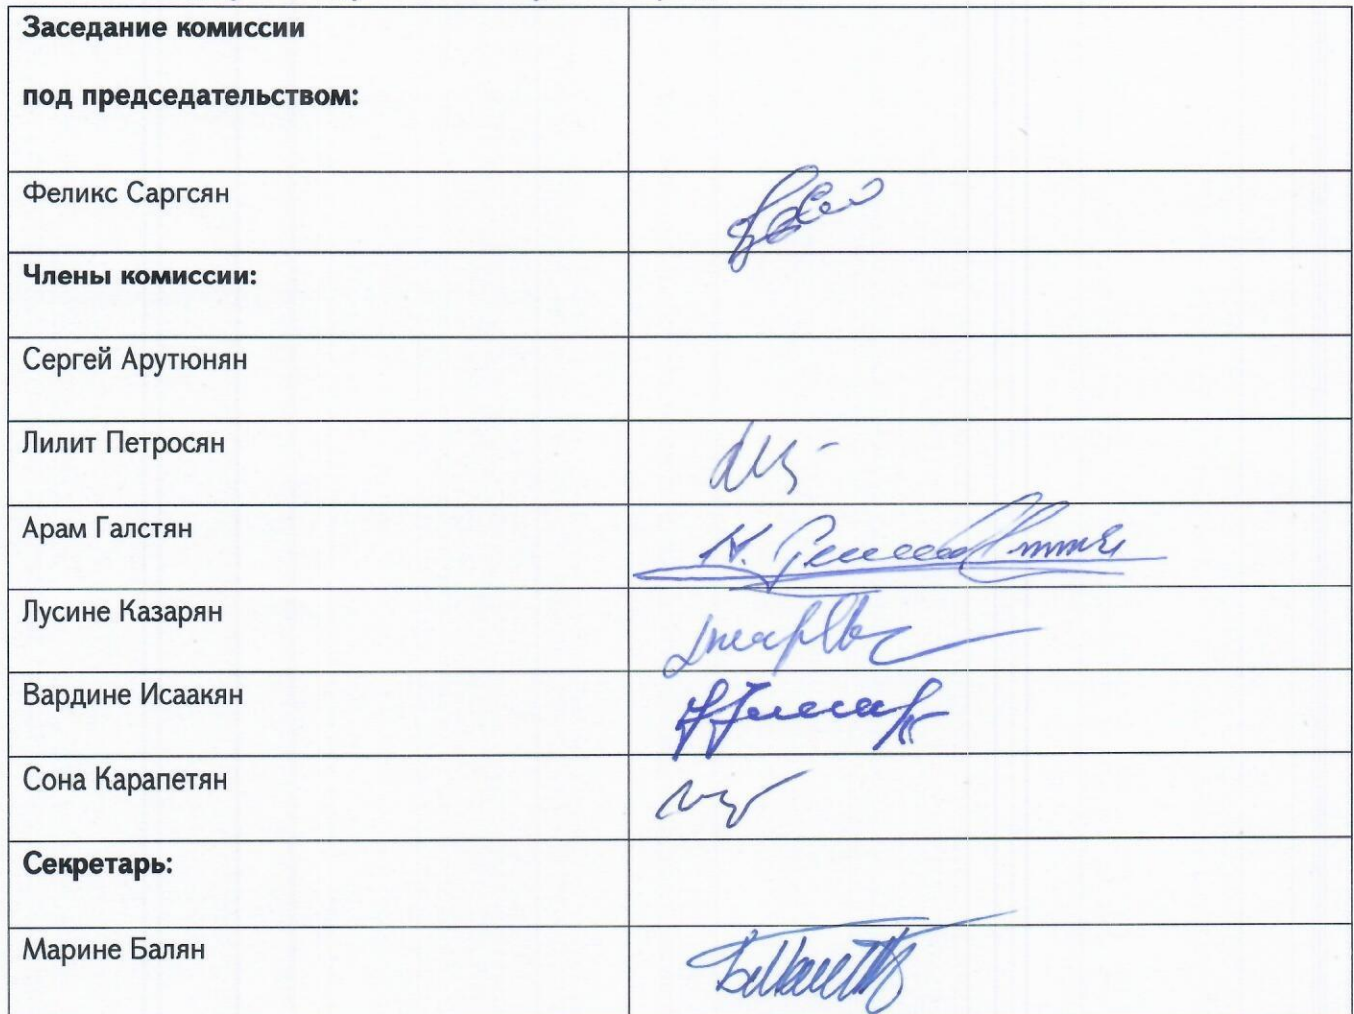 Заседание комиссии
под председательством:
Феликс Саргсян
Члены комиссии:
Сергей Арутюнян
Лилит Петросян
Арам Галстян
Лусине Казарян
Вардине Исаакян
Сона Карапетян
Секретарь:
Марине Балян